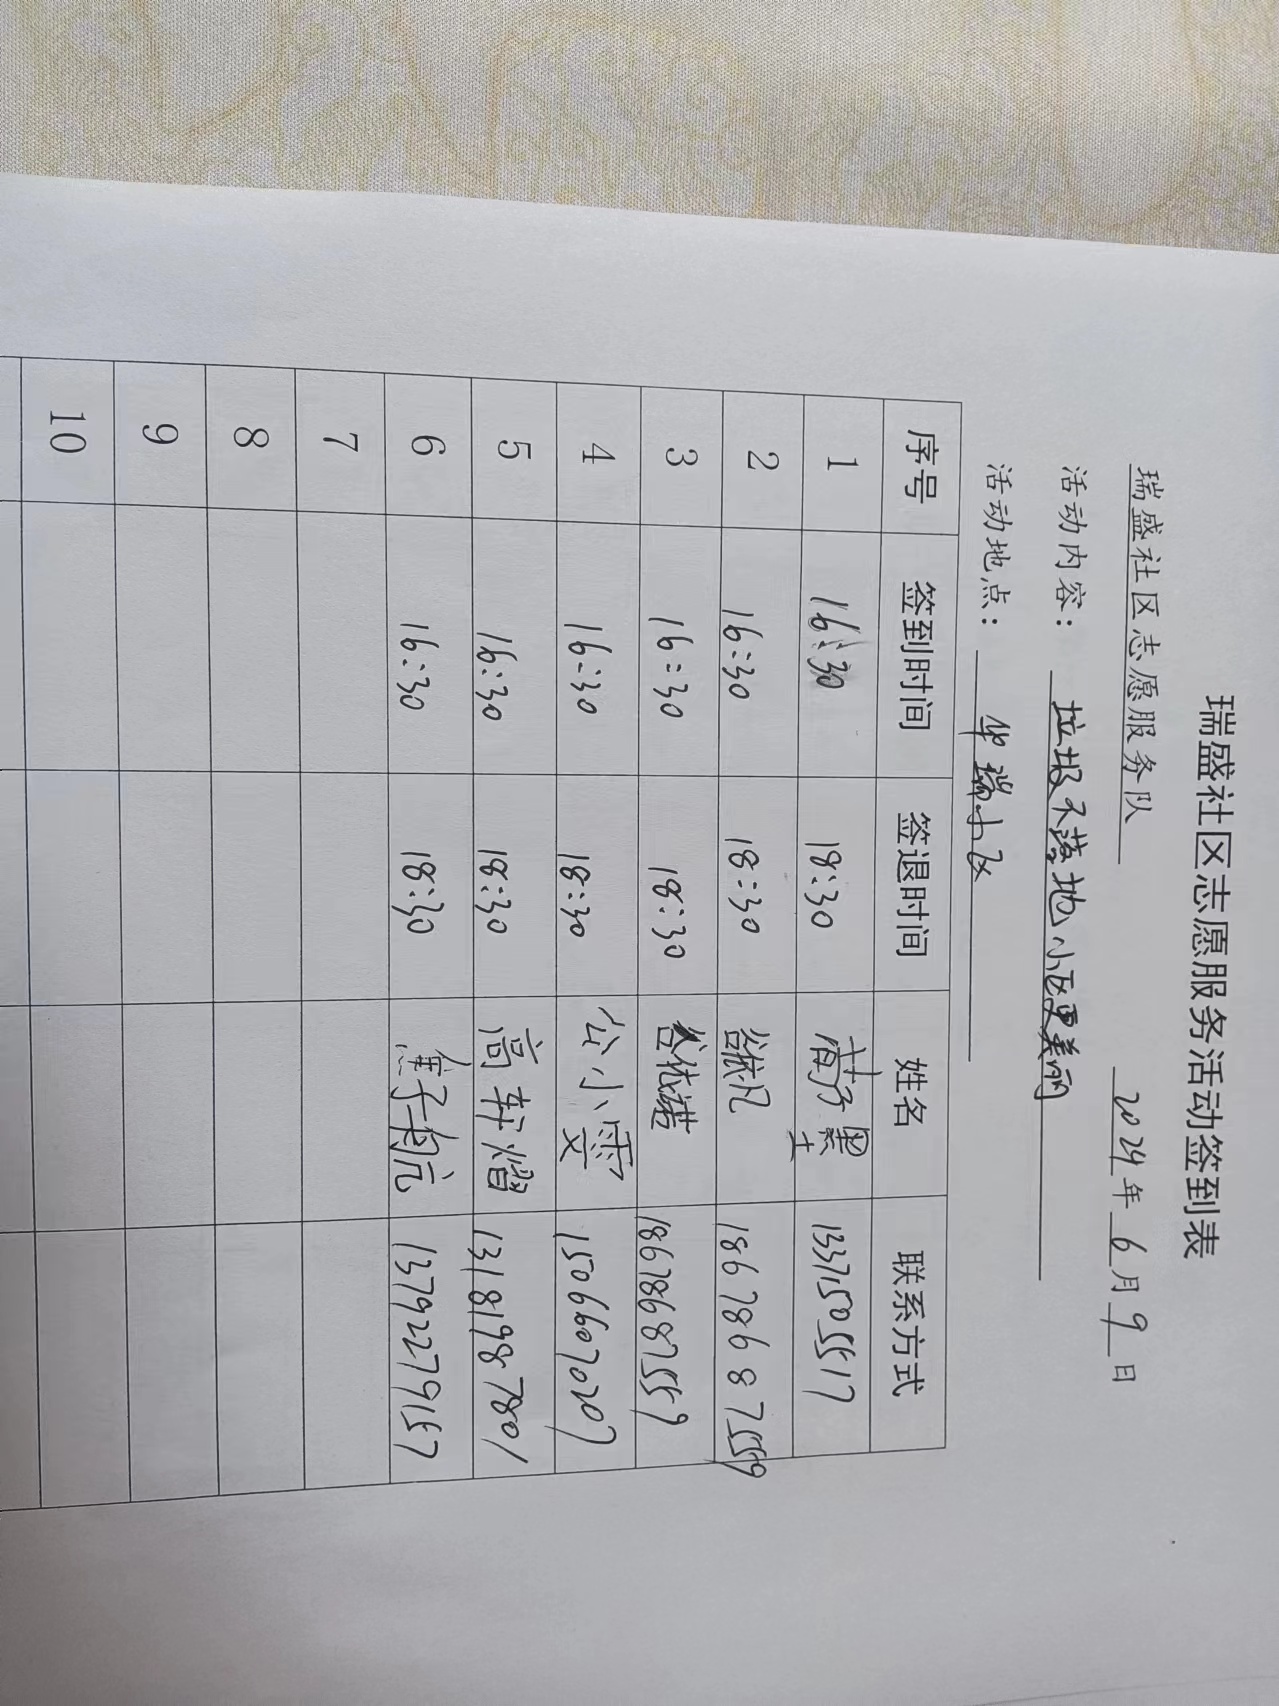 瑞盛社区志愿服务活动签到表
瑞盛社区志愿服务队 2024年6月9日
活动内容：垃圾不落地 小区更美丽
活动地点：华瑞小区
序号 签到时间 签退时间 姓名 联系方式
1 16:30 18:30 苗子墨 13371505517
2 16:30 18:30 谷依凡 18678687559
3 16:30 18:30 谷依诺 18678687559
4 16:30 18:30 公小雯 15066607020
5 16:30 18:30 高轩熠 13181987801
6 16:30 18:30 焦子航 13792279157
7
8
9
10